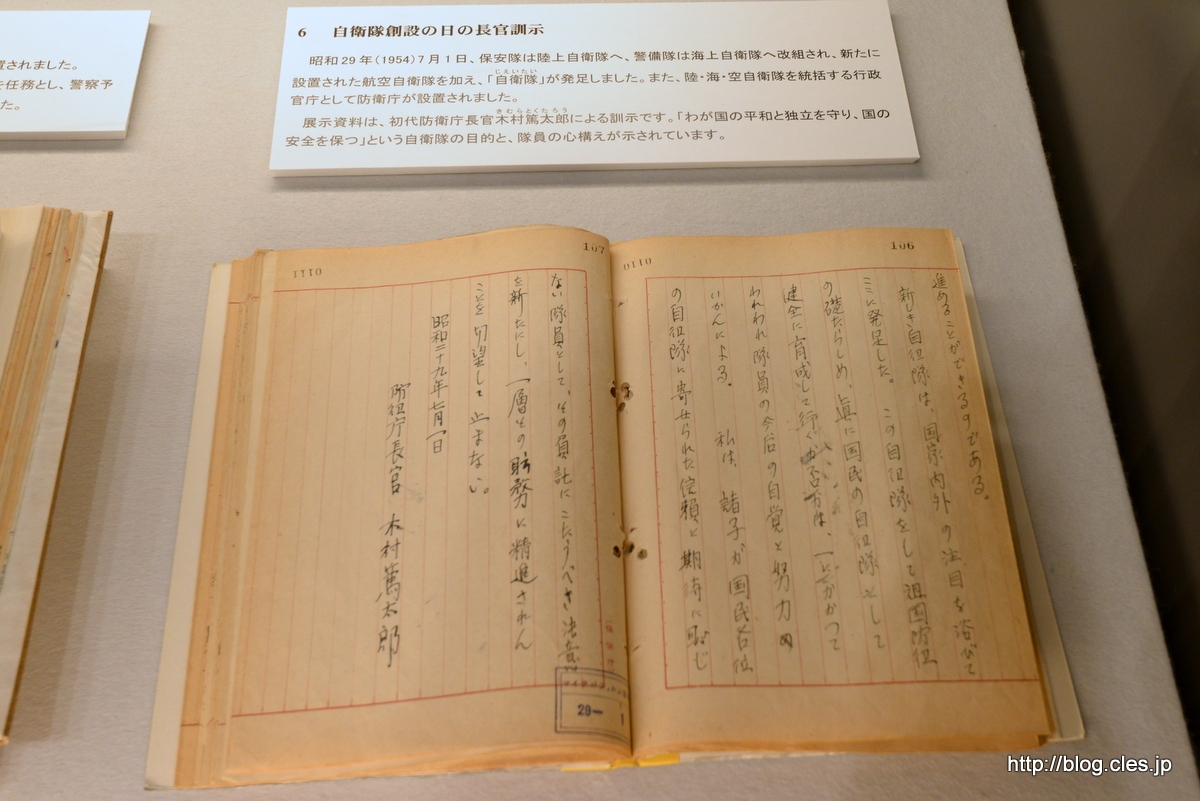 置されました。
を任務とし、警察予
た。
6 自衛隊創設の日の長官訓示
昭和29年(1954)7月1日、保安隊は陸上自衛隊へ、警備隊は海上自衛隊へ改組され、新たに
設置された航空自衛隊を加え、「自衛隊」が発足しました。また、陸・海・空自衛隊を統括する行政
官庁として防衛庁が設置されました。
展示資料は、初代防衛庁長官木村篤太郎による訓示です。「わが国の平和と独立を守り、国の
安全を保つ」という自衛隊の目的と、隊員の心構えが示されています。
106
0110
進めることができるのである。
新しき自衛隊は、国家内外の注目を浴びて
ここに発足した。この自衛隊をして祖国防衛
の礎たらしめ、真に国民の自衛隊として
健全に育成して行くか否かは、一にかかつて
われわれ隊員の今后の自覚と努力の
いかんによる。私は、諸子が国民各位
の自衛隊に寄せられた信頼と期待に恥じ
107
0111
ない隊員として、その負託にこたうべき決意
を新たにし、一層その財務に精進されん
ことを切望して止まない。
昭和二十九年七月一日
防衛庁長官 木村篤太郎
29— 1
http://blog.cles.jp